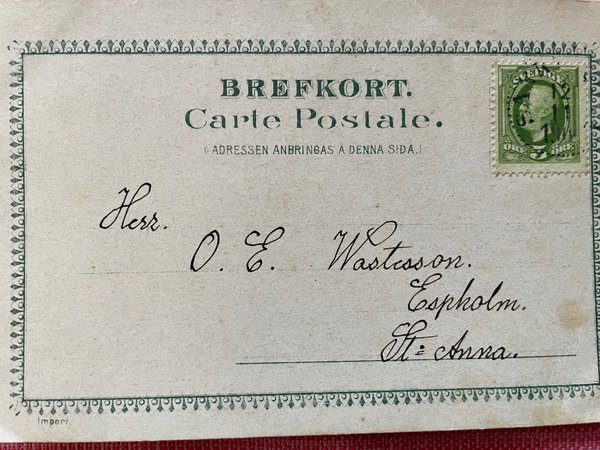 BREFKORT.
Carte Postale.
(ADRESSEN ANBRINGAS Å DENNA SIDA.)
Herr.
O. E. Wastesson.
Espholm.
St=Anna.
5 ÖRE
Import.